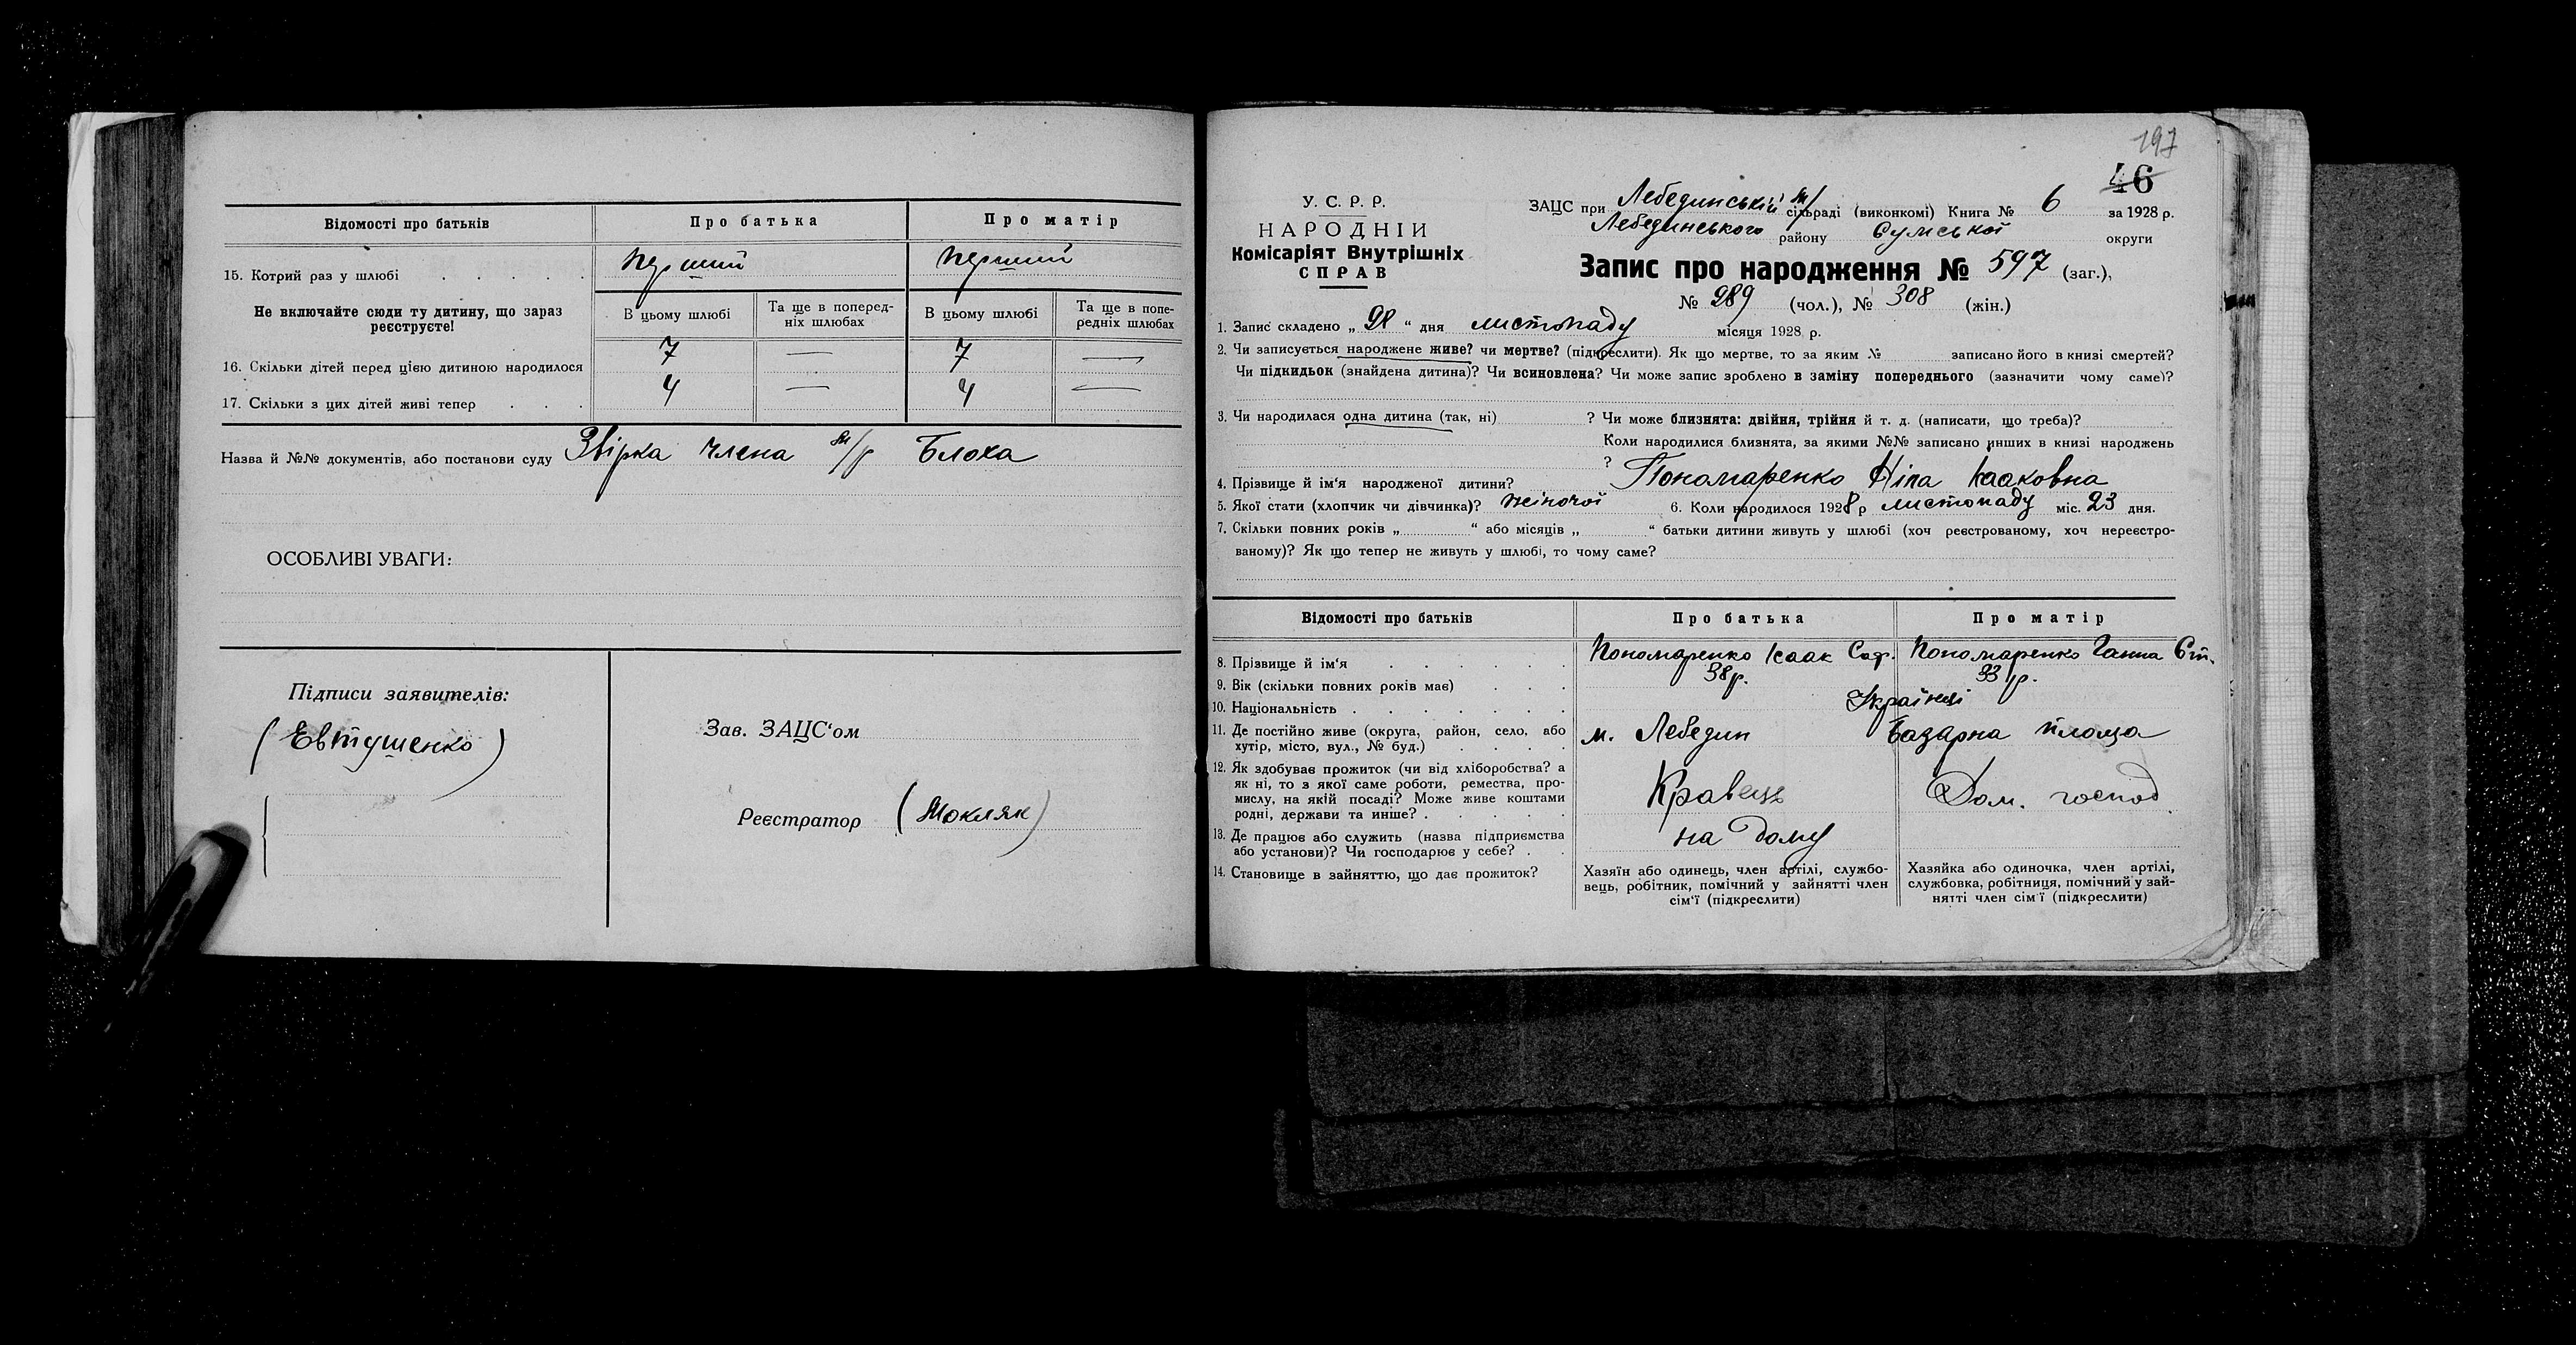 Відомості про батьків
Про батька
Про матір
15. Котрий раз у шлюбі
перший
перший
Не включайте сюди ту дитину, що зараз
реєструєте!
В цьому шлюбі
Та ще в поперед-
ніх шлюбах
В цьому шлюбі
Та ще в попе-
редніх шлюбах
16. Скільки дітей перед цією дитиною народилося
7 — 7 —
17. Скільки з цих дітей живі тепер
4 — 4 —
Назва й №№ документів, або постанови суду Звірка члена м/р Блоха
ОСОБЛИВІ УВАГИ:
Підписи заявителів:
(Евтушенко)
Зав. ЗАЦС‘ом
Реєстратор (Мокляк)
197
46
У. С. Р. Р.
НАРОДНІЙ
Комісаріят Внутрішніх
СПРАВ
ЗАЦС при Лебединській м/ сільраді (виконкомі) Книга № 6 за 1928 р.
Лебединського району Сумської округи
Запис про народження № 597 (заг.),
№ 289 (чол.), № 308 (жін.)
1. Запис складено „ 28 “ дня листопаду місяця 1928 р.
2. Чи записується народжене живе? чи мертве? (підкреслити). Як що мертве, то за яким № записано його в книзі смертей?
Чи підкидьок (знайдена дитина)? Чи всиновлена? Чи може запис зроблено в заміну попереднього (зазначити чому саме)?
3. Чи народилася одна дитина (так, ні) ? Чи може близнята: двійня, трійня й т. д. (написати, що треба)?
Коли народилися близнята, за якими №№ записано инших в книзі народжень
?
4. Прізвище й ім‘я народженої дитини? Пономаренко Ніна Ісааковна
5. Якої стати (хлопчик чи дівчинка)? жіночої 6. Коли народилося 1928 р листопаду міс. 23 дня.
7. Скільки повних років „ “ або місяців „ “ батьки дитини живуть у шлюбі (хоч реєстрованому, хоч нереєстро-
ваному)? Як що тепер не живуть у шлюбі, то чому саме?
Відомості про батьків
Про батька
Про матір
8. Прізвище й ім‘я
Пономаренко Ісаак Саф.
Пономаренко Ганна Єт.
9. Вік (скільки повних років має)
38 р.
33 р.
10. Національність
Українці
11. Де постійно живе (округа, район, село, або
хутір, місто, вул., № буд.)
м. Лебедин Базарна площа
12. Як здобуває прожиток (чи від хліборобства? а
як ні, то з якої саме роботи, ремества, про-
мислу, на якій посаді? Може живе коштами
родні, держави та инше?
Кравець
Дом. господ.
13. Де працює або служить (назва підприємства
або установи)? Чи господарює у себе?
на дому
14. Становище в зайняттю, що дає прожиток?
Хазяїн або одинець, член артілі, службо-
вець, робітник, помічний у зайнятті член
сім‘ї (підкреслити)
Хазяйка або одиночка, член артілі,
службовка, робітниця, помічний у зай-
нятті член сім‘ї (підкреслити)